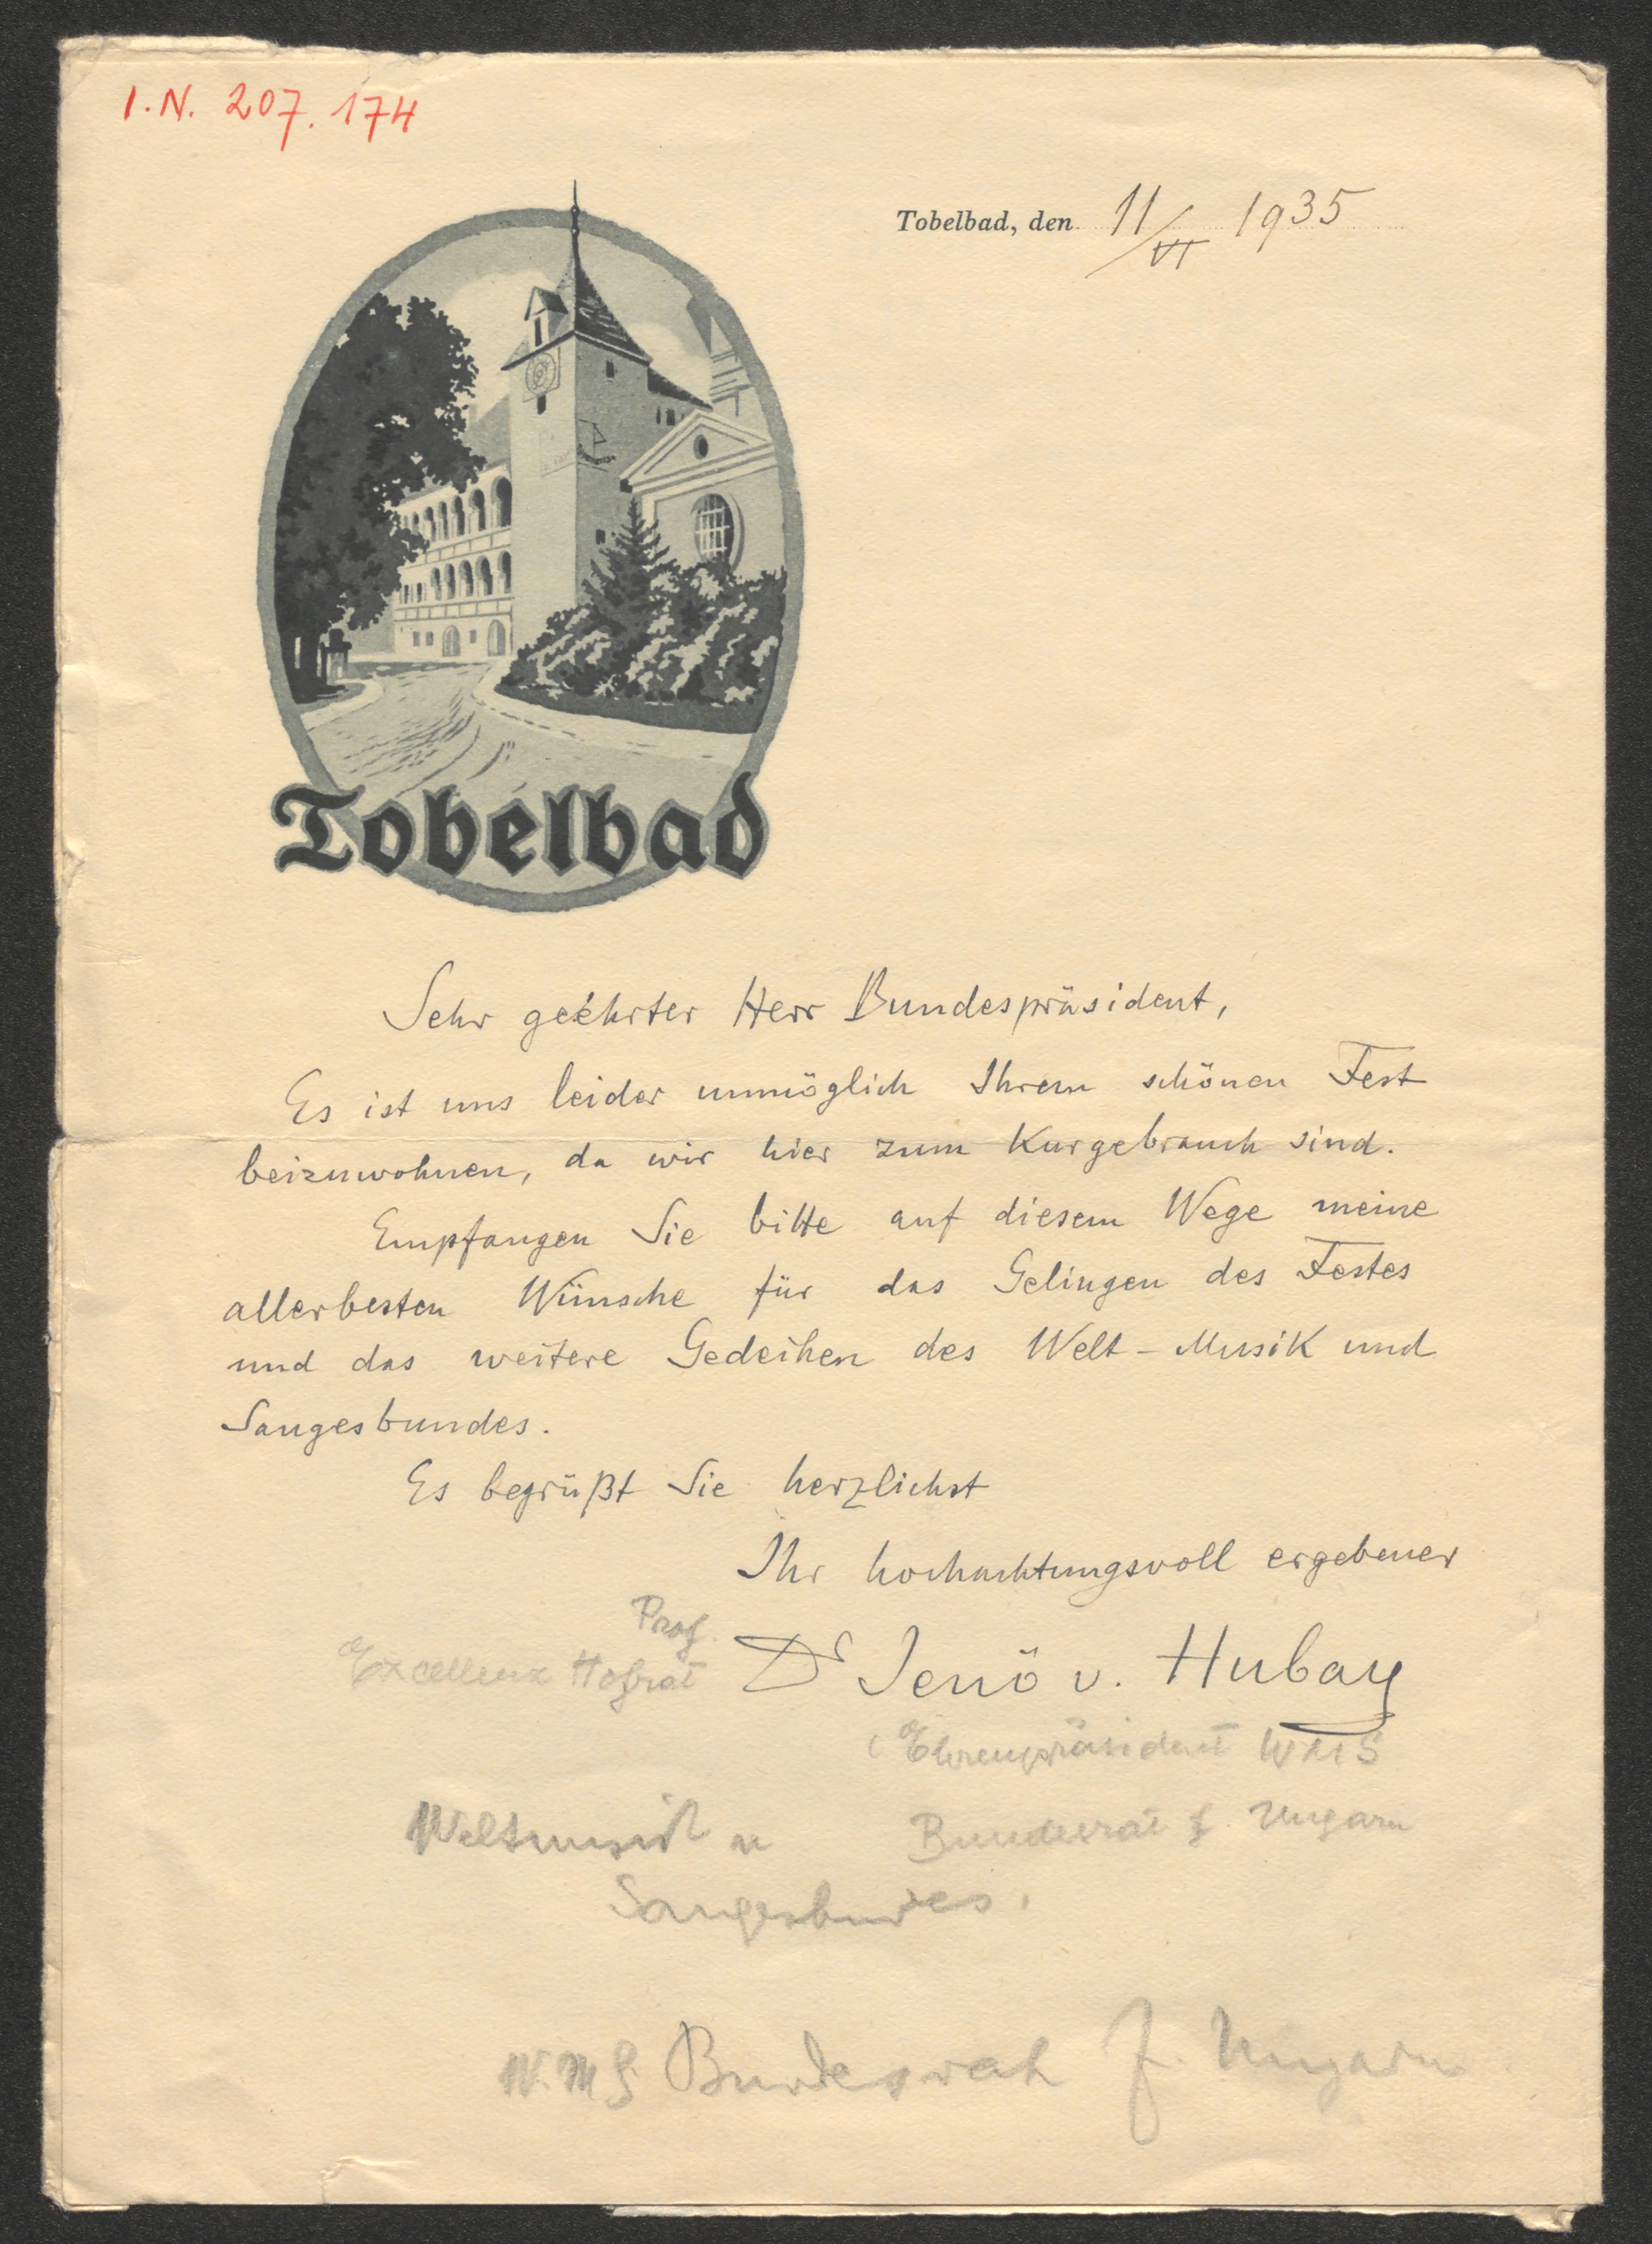 I.N. 207.174
Tobelbad, den 11/VI 1935
Tobelbad
Sehr geehrter Herr Bundespräsident,
Es ist uns leider unmöglich Ihrem schönen Fest
beizuwohnen, da wir hier zum Kurgebrauch sind.
Empfangen Sie bitte auf diesem Wege meine
allerbesten Wünsche für das Gelingen des Festes
und das weitere Gedeihen des Welt-Musik und
Sangesbundes.
Es begrüßt Sie herzlichst
Ihr hochachtungsvoll ergebener
Prof.
Excellenz Hofrat Dr Jenö v. Hubay
(Ehrenpräsident WMS
Weltmusik u Bundesrat f. Ungarn
Sangesbundes.
W.M.S. Bundesrat f. Ungarn